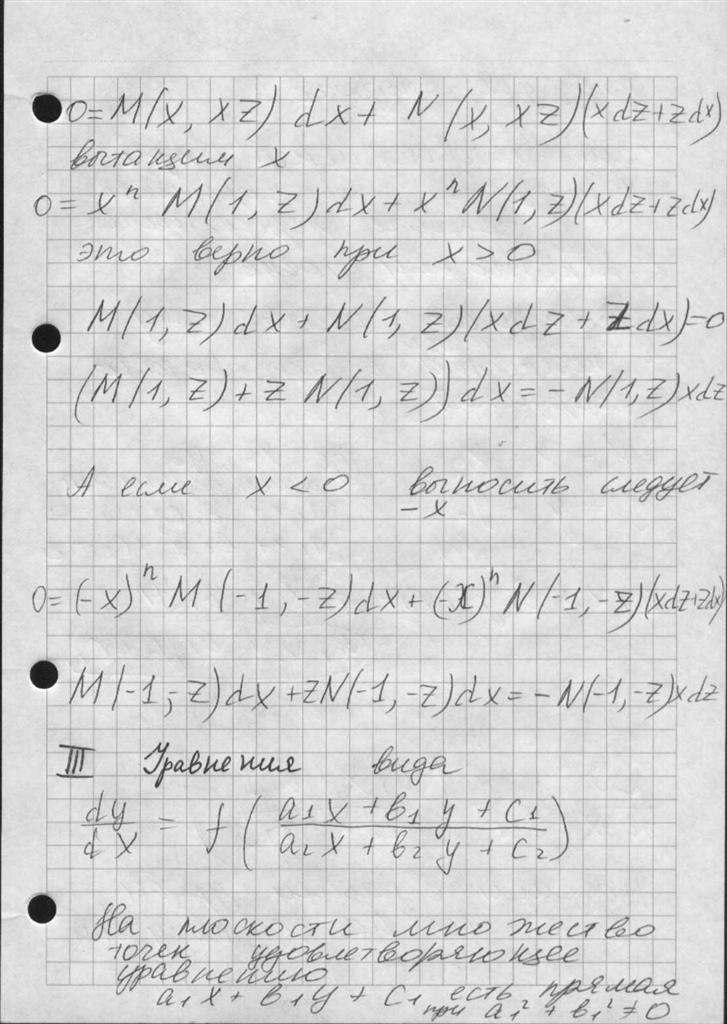 0 = M(x, xz) dx + N(x, xz)(xdz + zdx)
вытащим x
0 = xⁿ M(1, z)dx + xⁿ N(1, z)(xdz + zdx)
это верно при x > 0
M(1, z)dx + N(1, z)(xdz + zdx) = 0
(M(1, z) + z N(1, z)) dx = - N(1, z)xdz
А если x < 0 выносить следует
-x
0 = (-x)ⁿ M(-1, -z)dx + (-x)ⁿ N(-1, -z)(xdz + zdx)
M(-1, -z)dx + zN(-1, -z)dx = - N(-1, -z)xdz
III Уравнения вида
dy/dx = f((a₁x + b₁y + c₁)/(a₂x + b₂y + c₂))
На плоскости множество
точек удовлетворяющее
уравнению
a₁x + b₁y + c₁ есть прямая
при a₁² + b₁² ≠ 0